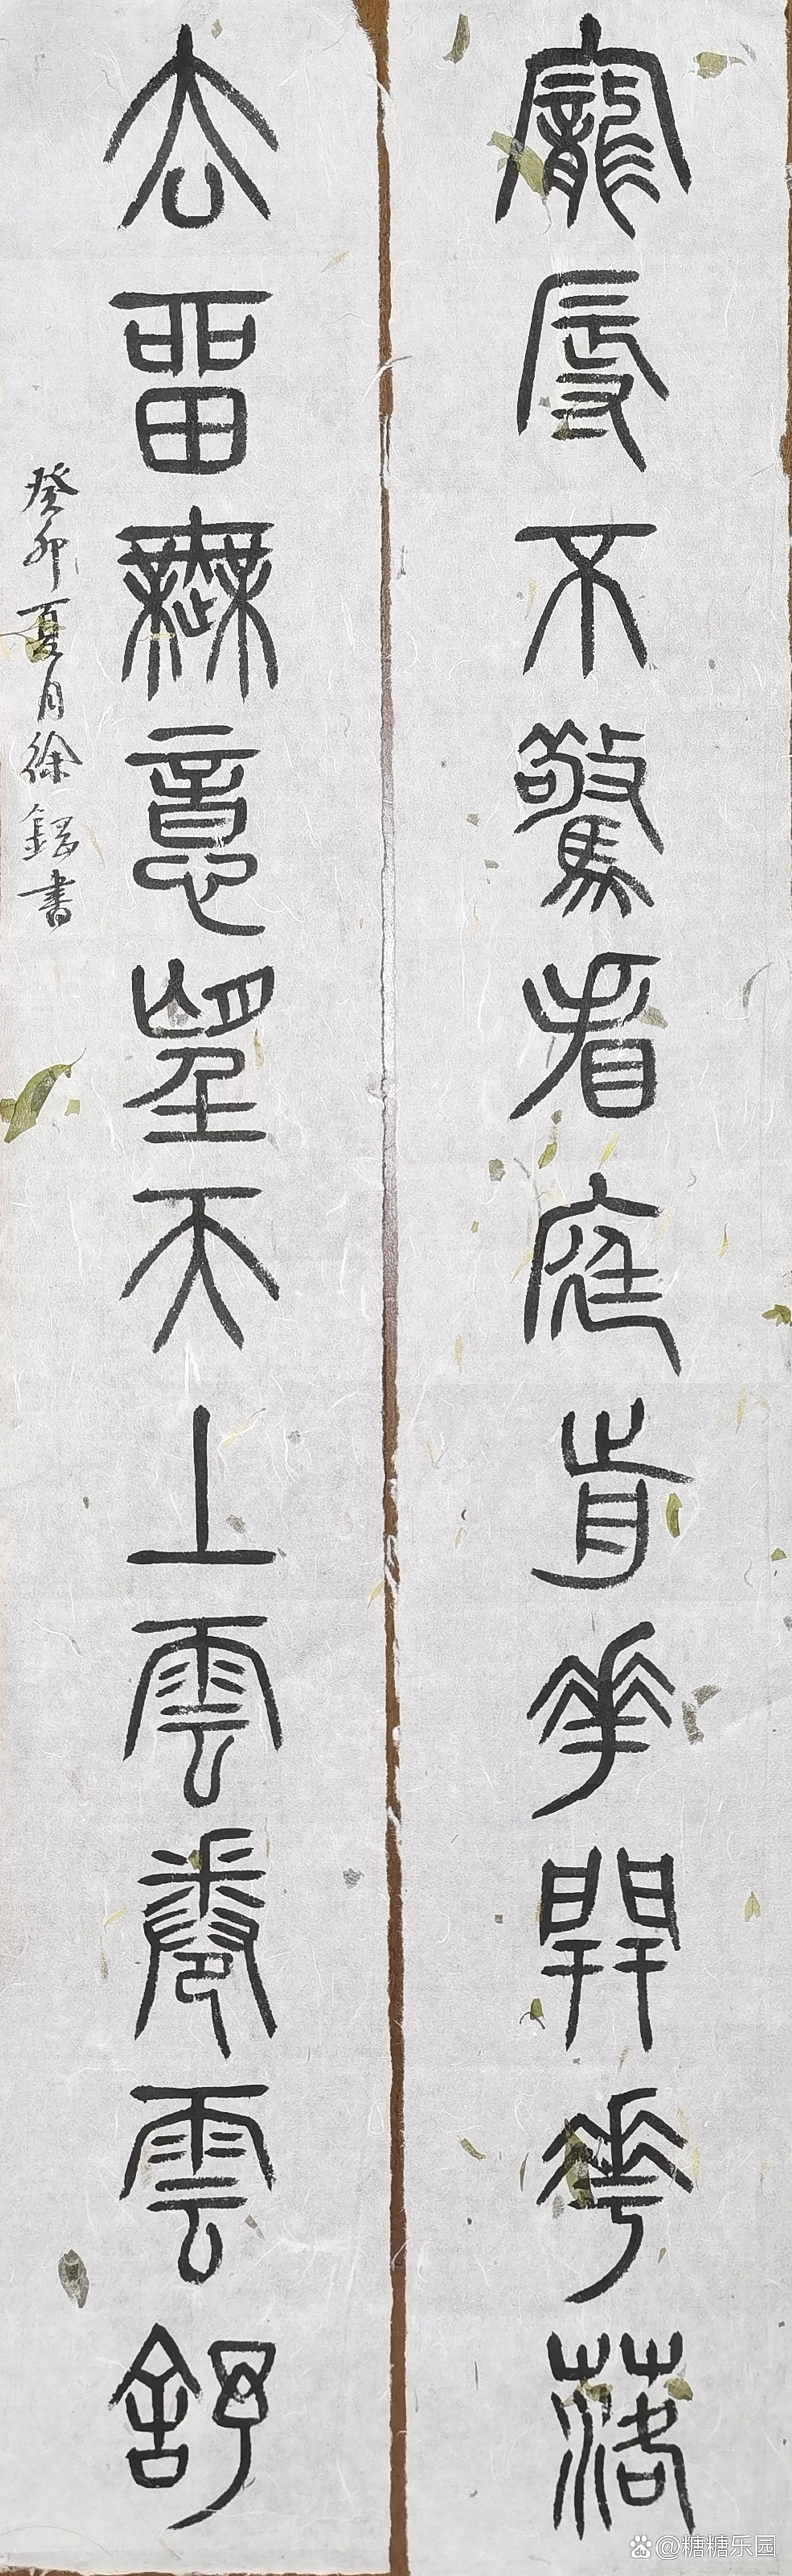 寵辱不驚看庭前花開花落
去留無意望天上雲卷雲舒
癸卯夏月徐書
@糖糖乐园